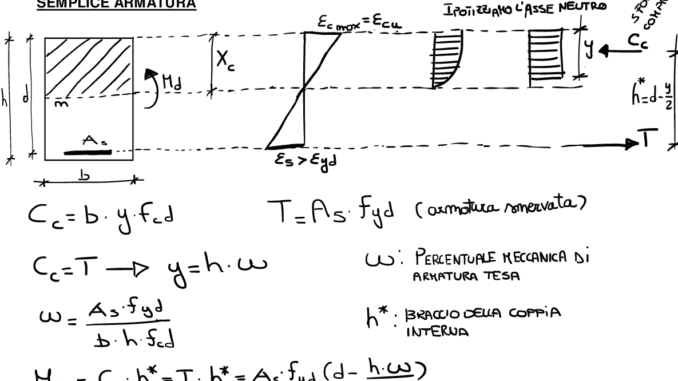 SEMPLICE ARMATURA
εc max = εcu
IPOTIZZIAMO L'ASSE NEUTRO
h
d
Xc
Md
m
As
b
εs > εyd
y
Cc
h* = d - y/2
T
Cc = b · y · fcd
T = As · fyd (armatura snervata)
Cc = T → y = h · ω
ω: PERCENTUALE MECCANICA DI
ARMATURA TESA
ω = As · fyd / b · h · fcd
h*: BRACCIO DELLA COPPIA
INTERNA
= C · h* = T · h* = As · fyd (d - h · ω